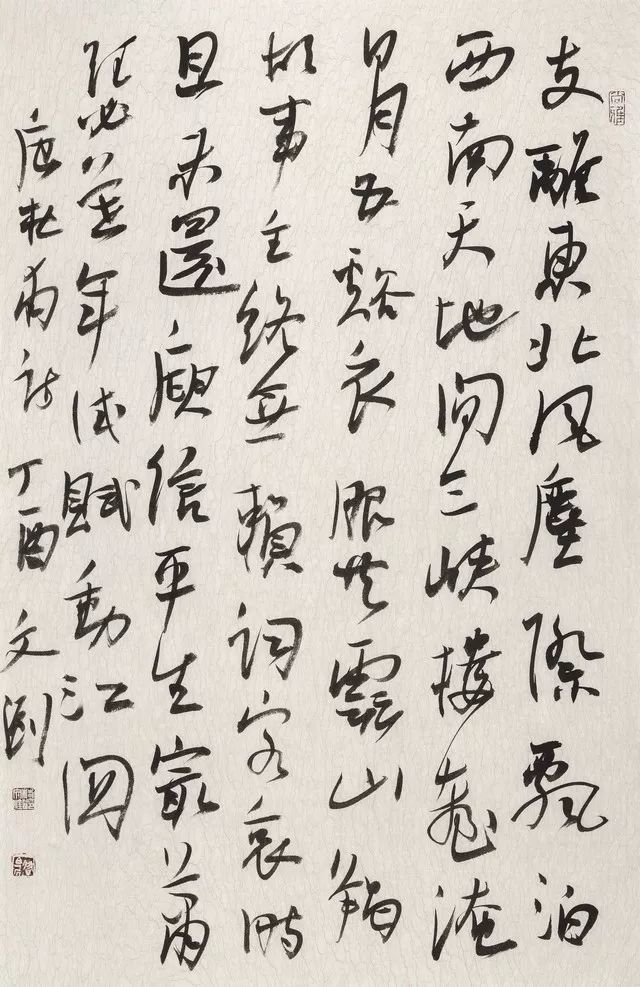 支離東北風塵際飄泊
西南天地間三峽樓臺淹
日月五谿衣服共雲山羯
胡事主終無賴詞客哀時
且未還庾信平生最蕭
瑟暮年詩賦動江關
唐杜甫詩丁酉文